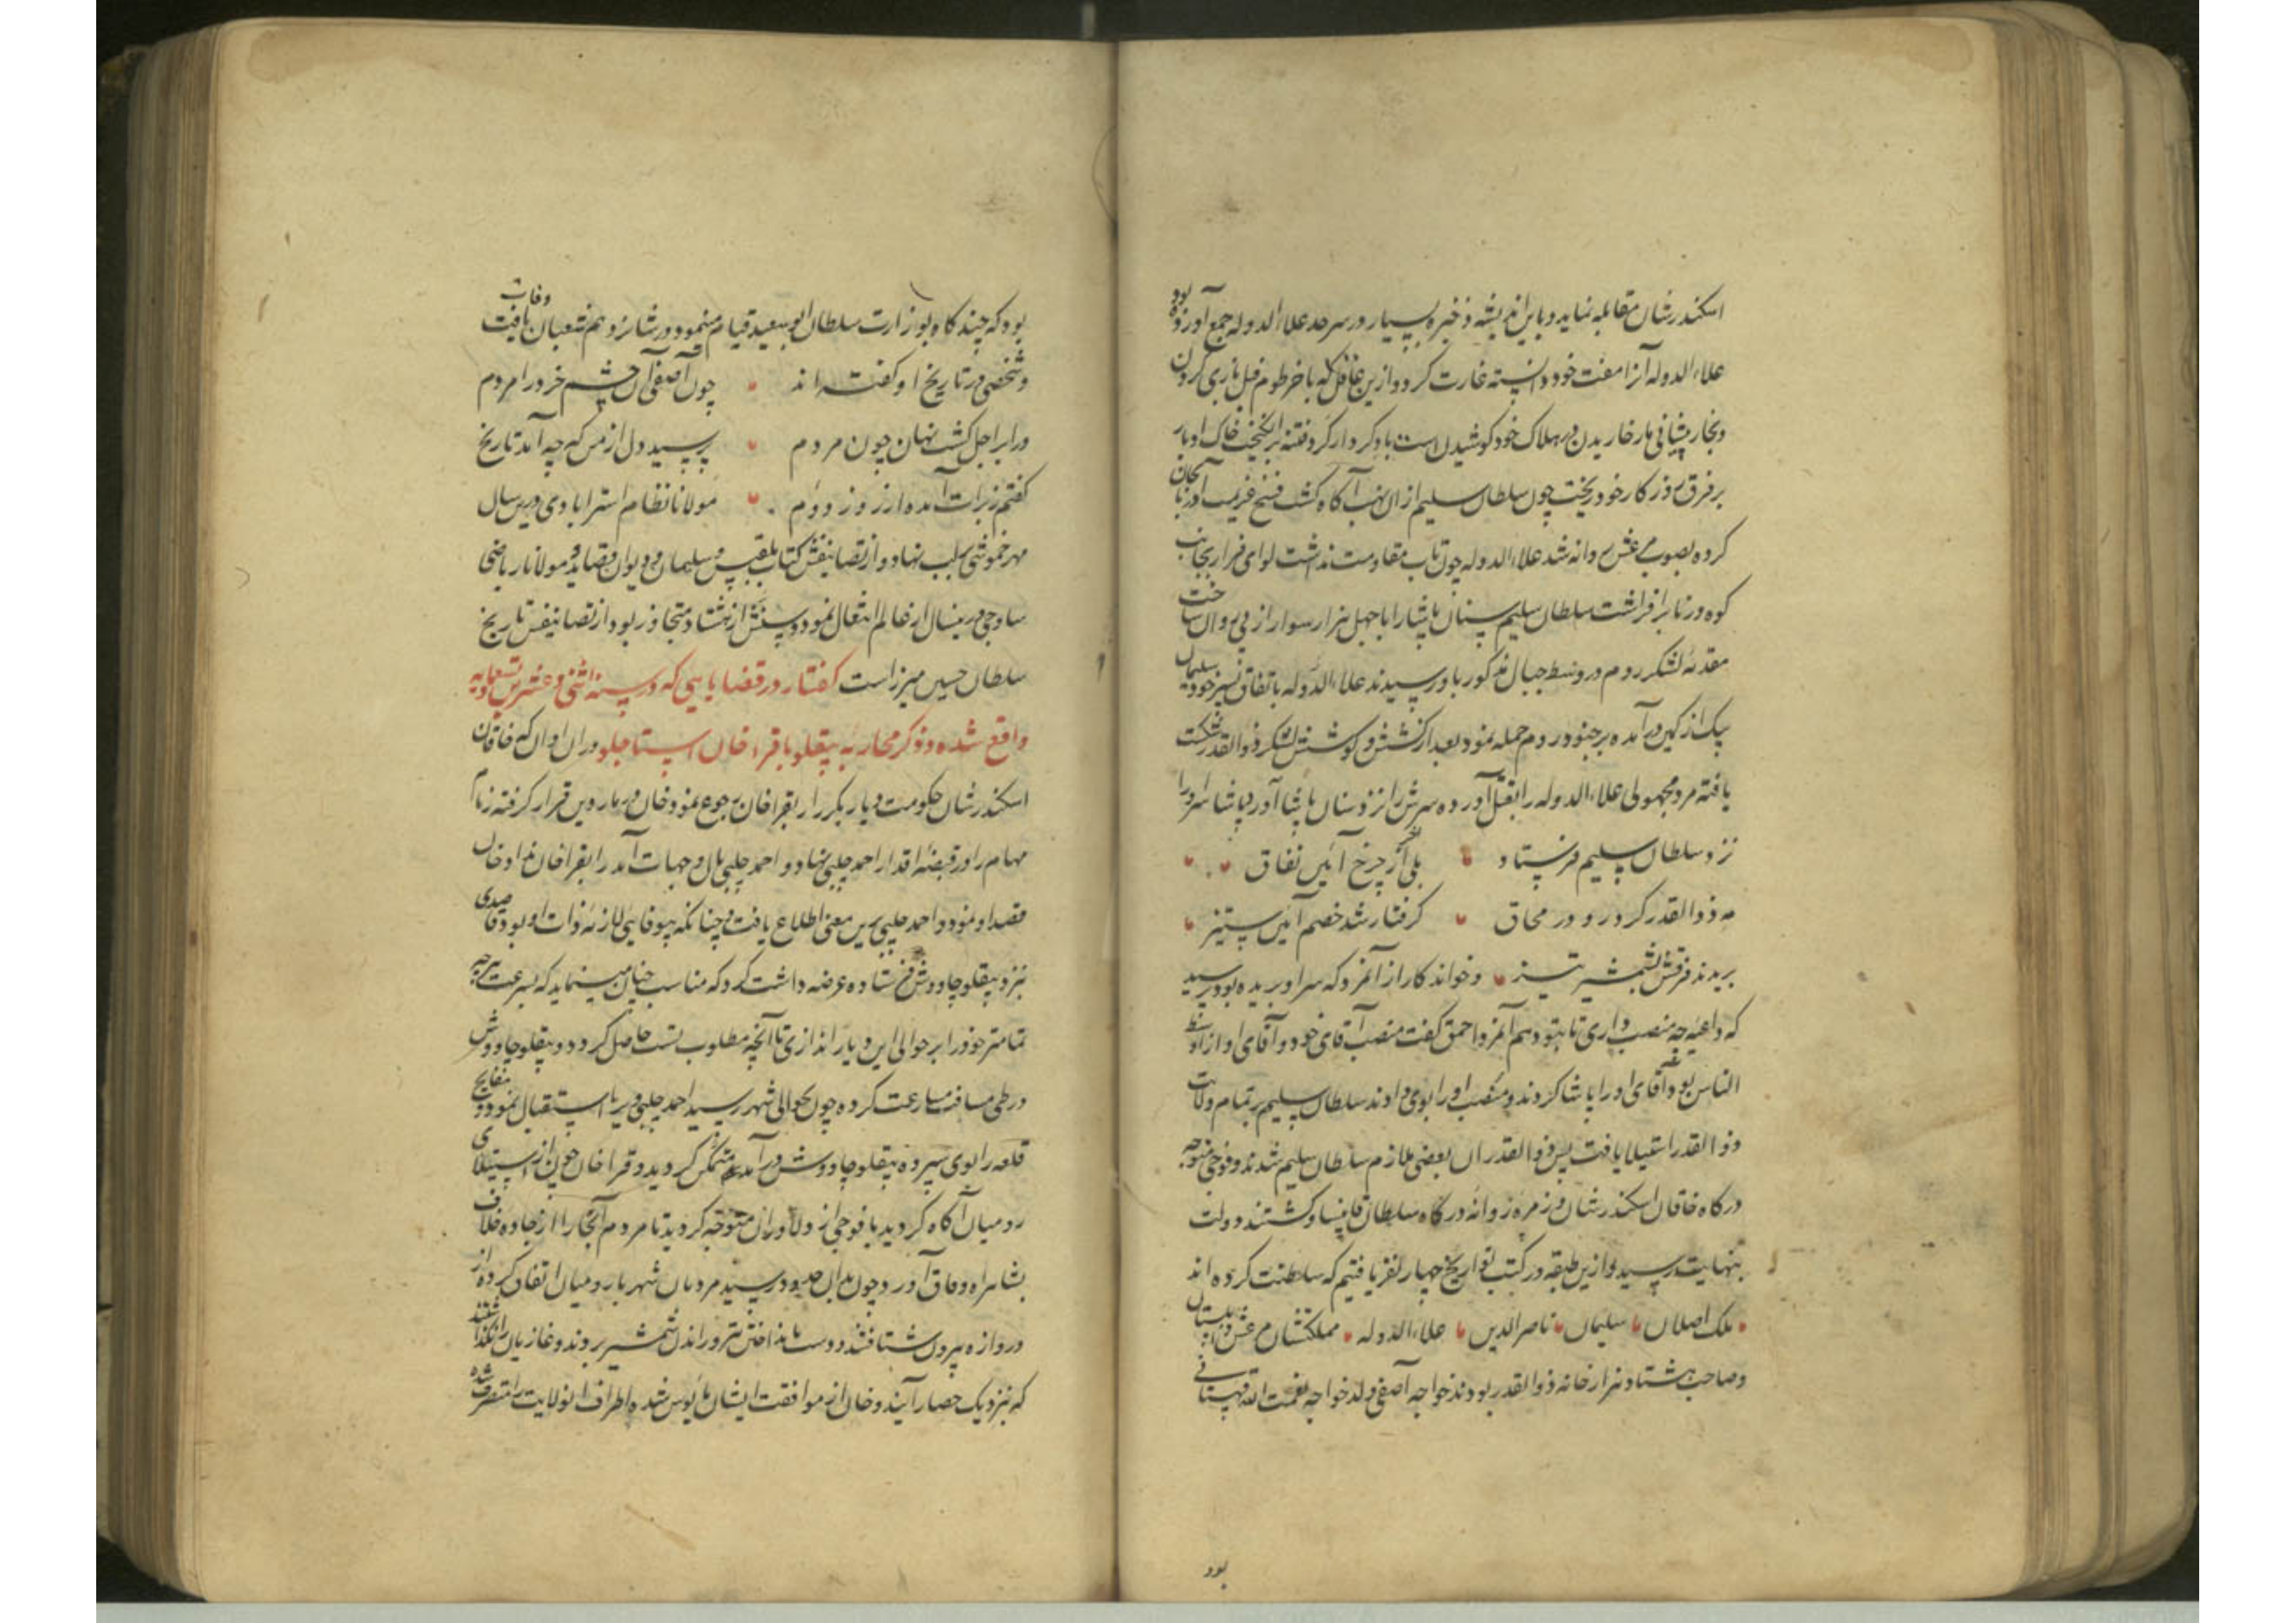 اسکندرشان مقابله نماید و باین اندیشه ذخیره بسیار در سرحد علاء الدوله جمع آورده بود
علاء الدوله آنرا مفت خود دانسته غارت کرد و ازین غافل که با خرطوم فیل بازی کردن
و بخار پیشانی مار خاریدن در هلاک خود کوشیدن است باد کردار گرد فتنه برانگیخت خاک ادبار
بر فرق روزکار خود ریخت چون سلطان سلیم از ان نهب آکاه کشت فسخ عزیمت آذربایجان
کرده بصوب مرعش روانه شد علاء الدوله چون تاب مقاومت نداشت لوای فرار بجانب
کوه درنا برافراشت سلطان سلیم سنان پاشا را با چهل هزار سوار از پی روان ساخت
مقدمه لشکر روم در وسط جبال مذکور باو رسیدند علاء الدوله باتفاق پسر خود سلیمان
بیک از کمین در آمده بر جنود روم حمله نمود بعد از کشش و کوشش لشکر ذوالقدر شکست
یافته مرد مجهولی علاء الدوله را بقتل آورده سرش را نزد سنان پاشا آورد پاشا سر او را
نزد سلطان سلیم فرستاد بلی از چرخ آئین نفاق
مه ذوالقدر کرد رو در محاق کرفتار شد خصم آئین ستیز
بریدند فرقش بشمشیر تیز و خواندکار از آنمرد که سر او بریده بود پرسید
که داعیه چه منصب داری تا بتو دهم آنمرد احمق کفت منصب آقای خود و آقای او از اوسط
الناس بود آقای او را پاشا کردند و منصب او را بوی دادند سلطان سلیم بر تمام ولایت
ذوالقدر استیلا یافت پس ذوالقدران بعضی ملازم سلطان سلیم شدند و فوجی متوجه
درکاه خاقان اسکندرشان و زمره روانه درکاه سلطان قانصاو کشتند دولت
بنهایت رسید و ازین طبقه در کتب تواریخ چهار نفر یافتیم که سلطنت کرده اند
ملک اصلان سلیمان ناصرالدین علاء الدوله مملکتشان مرعش و البستان
و صاحب هشتاد هزار خانه ذوالقدر بودند خواجه آصفی ولد خواجه نعمت الله قهستانی
بود
بود که چند کاه بوزارت سلطان ابو سعید قیام مینمود در شانزدهم شعبان وفات یافت
و شخصی در تاریخ او کفته اند چون آصفی آن چشم خرد را مردم
در ابر اجل کشت نهان چون مردم پرسید دل از من که چه آمد تاریخ
کفتم ز برات آمده از روز دوم مولانا نظام استرابادی درین سال
مهر خموشی بر لب نهاد و از تصانیفش کتاب بلقیس و سلیمان و دیوان قصاید و مولانا ریاضی
ساوجی درینسال از عالم انتقال نمود و سنش از هشتاد متجاوز بود از تصانیفش تاریخ
سلطان حسین میرزاست کفتار در قضایایی که در سنه اثنی و عشرین و تسعمایه
واقع شده و ذکر محاربه بیقلو با قراخان استاجلو در ان اوان که خاقان
اسکندرشان حکومت دیاربکر را بقراخان رجوع نمود خان در ماردین قرار کرفته زمام
مهام را در قبضه اقدار احمد چلبی نهاد و احمد چلبی مال و جهات آمد را بقراخان نداد خان
قصد او نمود و احمد چلبی برین معنی اطلاع یافت و چنانکه بیوفایی لازمه ذات او بود قاصدی
نزد بیقلو چاووش فرستاده عرضه داشت کرد که مناسب چنان مینماید که بسرعت هر چه
تمامتر خود را بر حوالی این دیار اندازی تا آنچه مطلوب تست حاصل کردد و بیقلو چاووش
در طی مسافت مسارعت کرده چون بحوالی شهر رسید احمد چلبی ویرا استقبال نمود و مفاتیح
قلعه را بوی سپرده بیقلو چاووش در آمد متمکن کردید و قراخان چون از استیلای
رومیان آکاه کردید با فوجی از دلاوران متوجه کردید تا مردم آنجا را از جاده خلاف
بشاهراه وفاق آورد چون بدان حدود رسید مردمان شهر با رومیان اتفاق کرده از
دروازه بیرون شتافتند و دست بانداختن تیر و راندن شمشیر بردند و غازیان را نکذاشتند
که بنزدیک حصار آیند و خان از موافقت ایشان مأیوس شده اطراف انولایت را متصرف شده